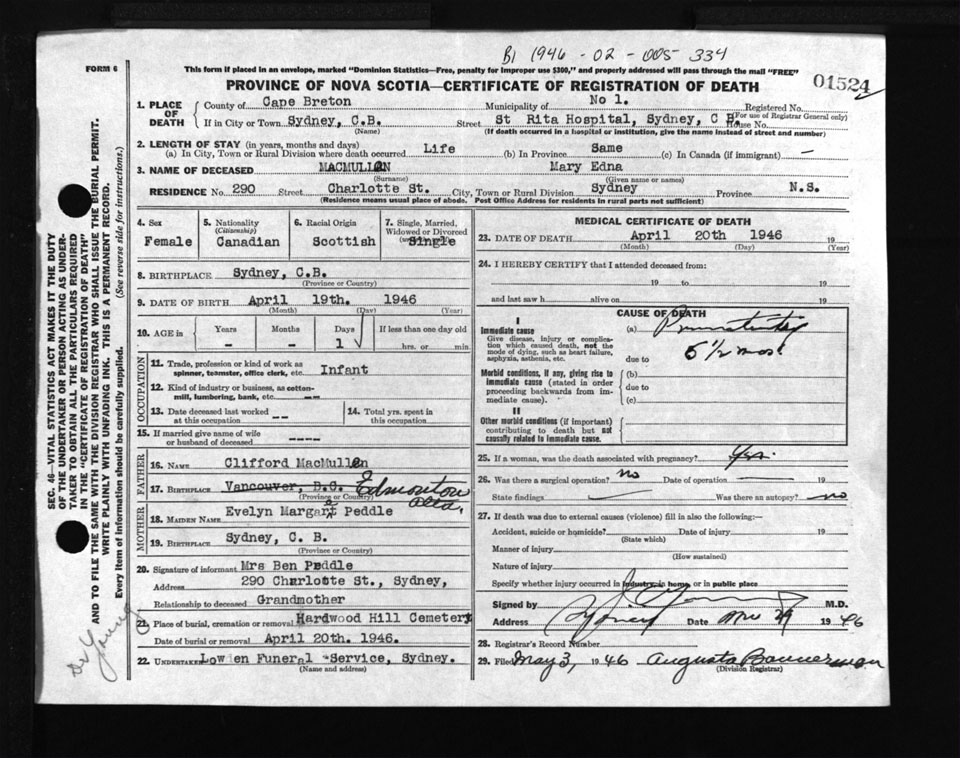 B1 1946 - 02 - 005 - 334
FORM 6
This form if placed in an envelope, marked "Dominion Statistics—Free, penalty for improper use $300," and properly addressed will pass through the mail "FREE"
01524
PROVINCE OF NOVA SCOTIA—CERTIFICATE OF REGISTRATION OF DEATH
1. PLACE OF DEATH
County of Cape Breton Municipality of No 1. Registered No.
(For use of Registrar General only)
If in City or Town Sydney, C.B. Street St Rita Hospital, Sydney, C B. House No.
(Name) (If death occurred in a hospital or institution, give the name instead of street and number)
2. LENGTH OF STAY (in years, months and days)
(a) In City, Town or Rural Division where death occurred Life (b) In Province Same (c) In Canada (if immigrant) —
3. NAME OF DECEASED MACMULLEN Mary Edna
(Surname) (Given name or names)
RESIDENCE No. 290 Street Charlotte St. City, Town or Rural Division Sydney Province N.S.
(Residence means usual place of abode. Post Office Address for residents in rural parts not sufficient)
4. Sex Female
5. Nationality (Citizenship) Canadian
6. Racial Origin Scottish
7. Single, Married, Widowed or Divorced Single
8. BIRTHPLACE Sydney, C.B.
(Province or Country)
9. DATE OF BIRTH April 19th. 1946
(Month) (Day) (Year)
10. AGE in Years Months Days If less than one day old
- - 1 ✓ hrs. or min.
OCCUPATION
11. Trade, profession or kind of work as spinner, teamster, office clerk, etc. Infant
12. Kind of industry or business, as cotton-mill, lumbering, bank, etc. --
13. Date deceased last worked at this occupation --
14. Total yrs. spent in this occupation
15. If married give name of wife or husband of deceased ----
FATHER
16. NAME Clifford MacMullen
17. BIRTHPLACE Vancouver, B.C. Edmonton Alta.
(Province or Country)
MOTHER
18. MAIDEN NAME Evelyn Margaret Peddle
19. BIRTHPLACE Sydney, C. B.
(Province or Country)
20. Signature of informant Mrs Ben Peddle
Address 290 Charlotte St., Sydney,
Relationship to deceased Grandmother
21. Place of burial, cremation or removal Hardwood Hill Cemetery
Date of burial or removal April 20th. 1946.
22. UNDERTAKER Low en Funeral Service, Sydney.
(Name and address)
MEDICAL CERTIFICATE OF DEATH
23. DATE OF DEATH April 20th 1946 19
(Month) (Day) (Year)
24. I HEREBY CERTIFY that I attended deceased from:
19 to 19
and last saw h alive on 19
CAUSE OF DEATH
I
Immediate cause (a) Prematurity
Give disease, injury or complication which caused death, not the mode of dying, such as heart failure, asphyxia, asthenia, etc.
due to 5 1/2 mos.
Morbid conditions, if any, giving rise to immediate cause (stated in order proceeding backwards from immediate cause).
(b)
due to
(c)
II
Other morbid conditions (if important) contributing to death but not causally related to immediate cause.
25. If a woman, was the death associated with pregnancy? Yes.
26. Was there a surgical operation? no Date of operation — 19
State findings — Was there an autopsy? no
27. If death was due to external causes (violence) fill in also the following:—
Accident, suicide or homicide? Date of injury 19
(State which)
Manner of injury
(How sustained)
Nature of injury
Specify whether injury occurred in industry, in home, or in public place
Signed by M.D.
Address Sydney Date 29 1946
28. Registrar's Record Number
29. Filed May 3, 1946 Augusta Bannerman
(Division Registrar)
SEC. 46—VITAL STATISTICS ACT MAKES IT THE DUTY
OF THE UNDERTAKER OR PERSON ACTING AS UNDER-
TAKER TO OBTAIN ALL THE PARTICULARS REQUIRED
IN THE "CERTIFICATE OF REGISTRATION OF DEATH"
AND TO FILE THE SAME WITH THE DIVISION REGISTRAR WHO SHALL ISSUE THE BURIAL PERMIT.
WRITE PLAINLY WITH UNFADING INK. THIS IS A PERMANENT RECORD.
Every item of information should be carefully supplied. (See reverse side for instructions.)